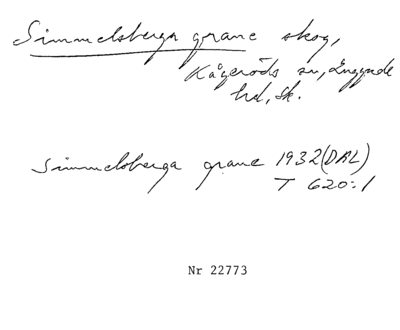 Simmelsberga grane skog,
Kågeröds sn, Luggude
hd, Sk.
Simmelsberga grane 1932 (DAL)
T 620:1
Nr 22773